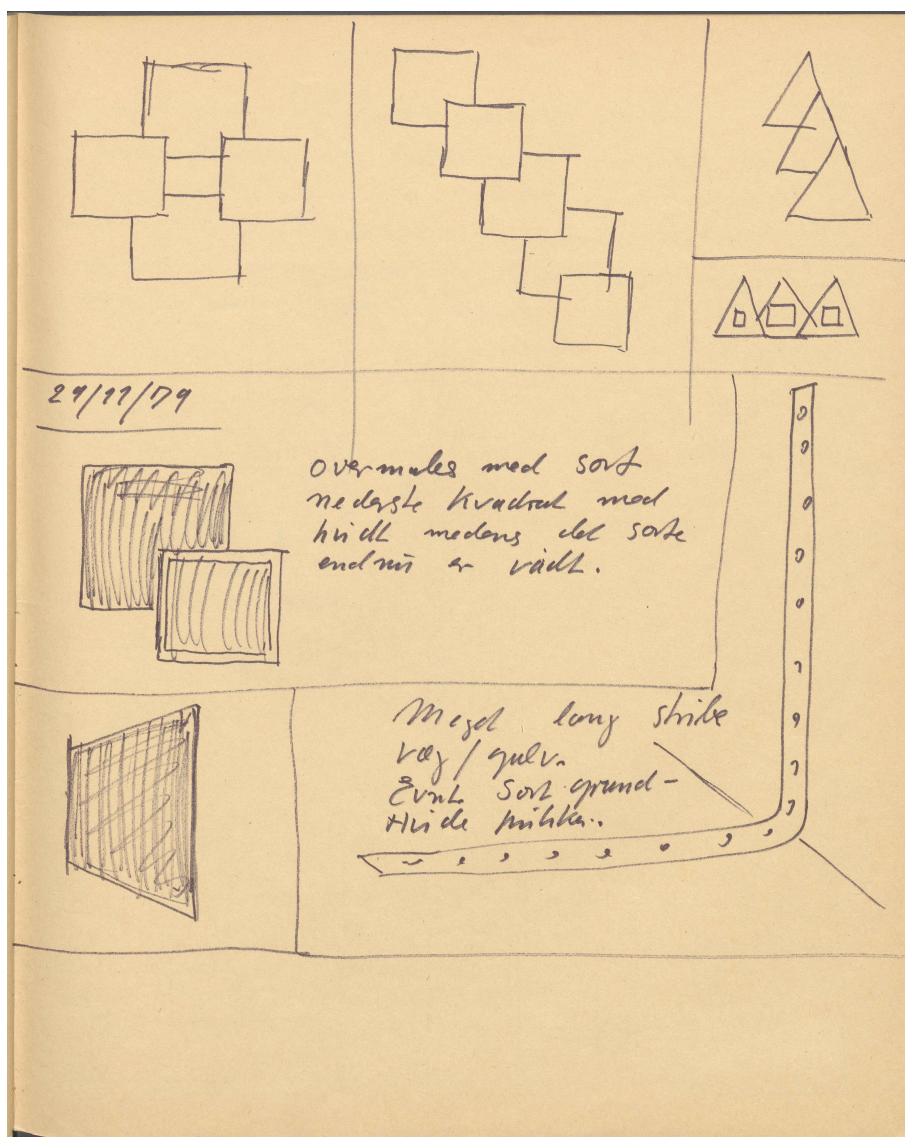 29/11/79
overmales med sort
nederste kvadrat med
hvidt medens det sorte
endnu er vådt.
Meget lang stribe
væg / gulv.
Evnt. Sort grund-
Hvide prikker.